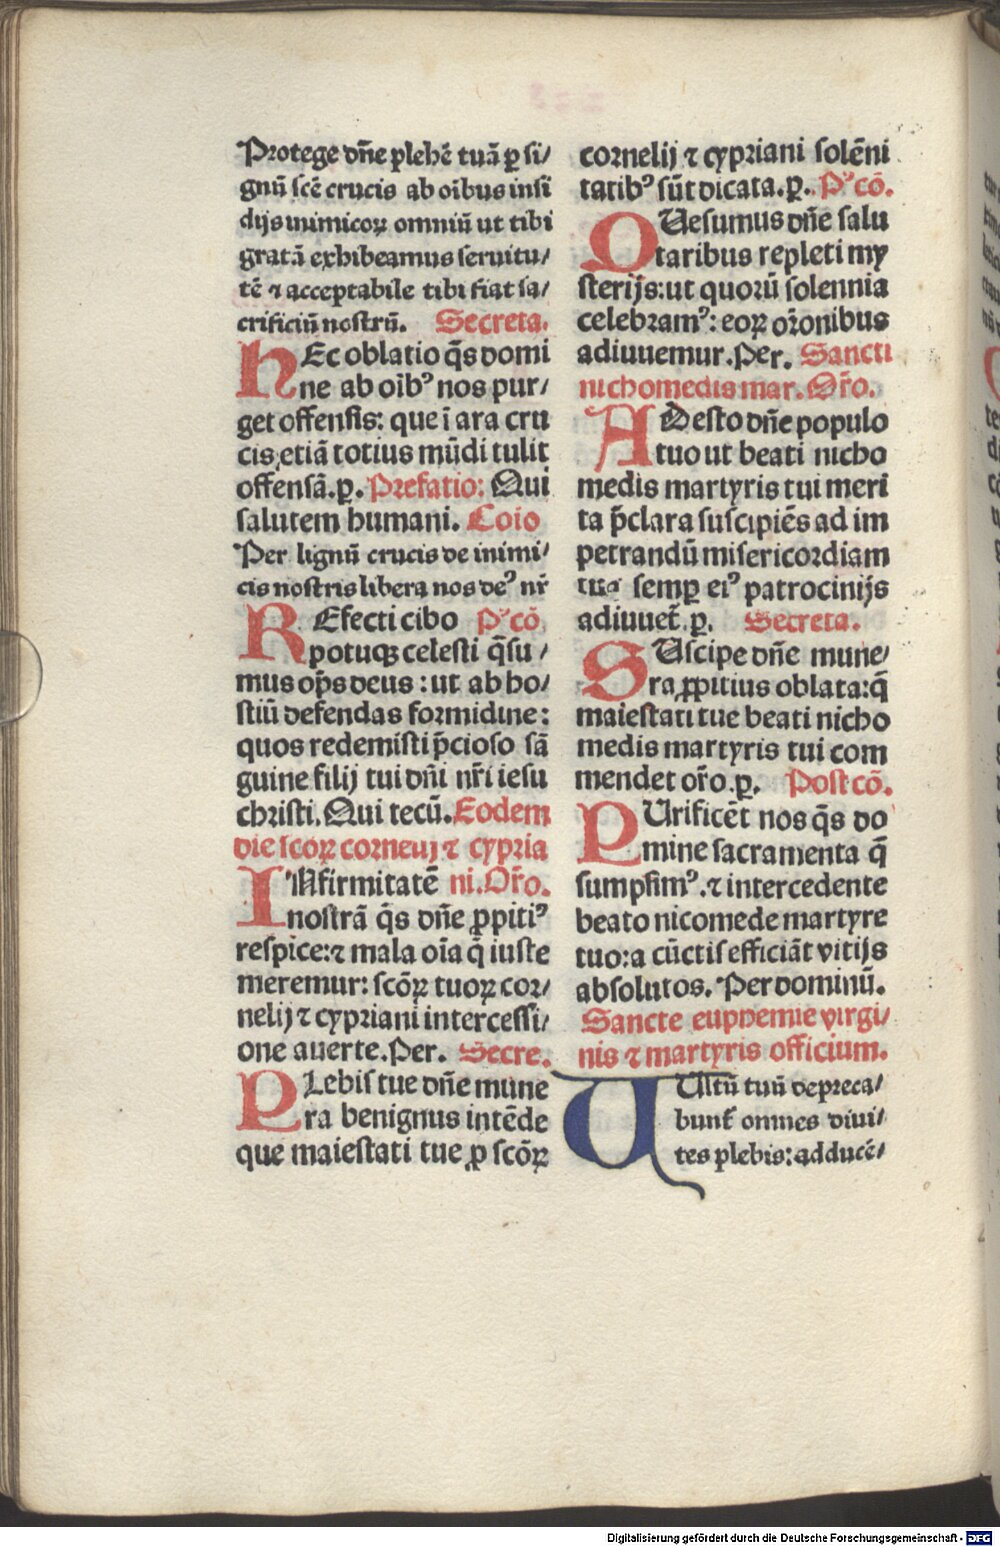 Protege dn̄e plebē tuā ꝑ si/
gnū scē crucis ab oībus insi
dijs inimicoꝝ omniū ut tibi
gratā exhibeamus seruitu/
tē ⁊ acceptabile tibi fiat sa/
crificiū nostrū. Secreta.
HEc oblatio q̄s domi
ne ab oīb⁹ nos pur/
get offensis: que ī ara cru
cis etiā totius mūdi tulit
offensā.ꝑ. Prefatio: Qui
salutem humani. Cōio
Per lignū crucis de inimi/
cis nostris libera nos de⁹ nr̄
REfecti cibo P⁹cō.
potuqꝫ celesti q̄su/
mus op̄s deus: ut ab ho/
stiū defendas formidine:
quos redemisti p̄cioso sā
guine filij tui dn̄i nr̄i iesu
christi. Qui tecū. Eodem
die scoꝝ cornelij ⁊ cypria
INfirmitatē ni. Or̄o.
nostrā q̄s dn̄e ꝓpiti⁹
respice: ⁊ mala oīa q̄ iuste
meremur: scōꝝ tuoꝝ cor/
nelij ⁊ cypriani intercessi/
one auerte. Per. Secre.
PLebis tue dn̄e mune
ra benignus intēde
que maiestati tue ꝓ scōꝝ
cornelij ⁊ cypriani solēni
tatib⁹ sūt dicata.ꝑ. P⁹cō.
QUesumus dn̄e salu
taribus repleti my
sterijs: ut quorū solennia
celebram⁹: eoꝝ or̄onibus
adiuuemur. Per. Sancti
nichomedis mar. Or̄o.
ADesto dn̄e populo
tuo ut beati nicho
medis martyris tui meri
ta p̄clara suscipiēs ad im
petrandū misericordiam
tuā semꝑ ei⁹ patrocinijs
adiuuet̄.ꝑ. Secreta.
SUscipe dn̄e mune/
ra ꝓpitius oblata: q̄
maiestati tue beati nicho
medis martyris tui com
mendet or̄o.ꝑ. Postcō.
PUrificēt nos q̄s do
mine sacramenta q̄
sumpsim⁹. ⁊ intercedente
beato nicomede martyre
tuo: a cūctis efficiāt vitijs
absolutos. Per dominū.
Sancte euphemie virgi/
nis ⁊ martyris officium.
VUltū tuū depreca/
bunt̄ omnes diui/
tes plebis: adducē/
Digitalisierung gefördert durch die Deutsche Forschungsgemeinschaft - DFG